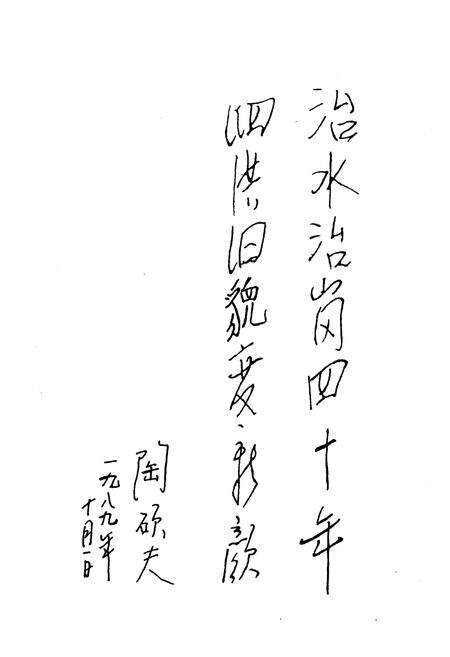 治水治岗四十年
泗洪旧貌变新颜
陶硕夫
一九八九年
十月一日